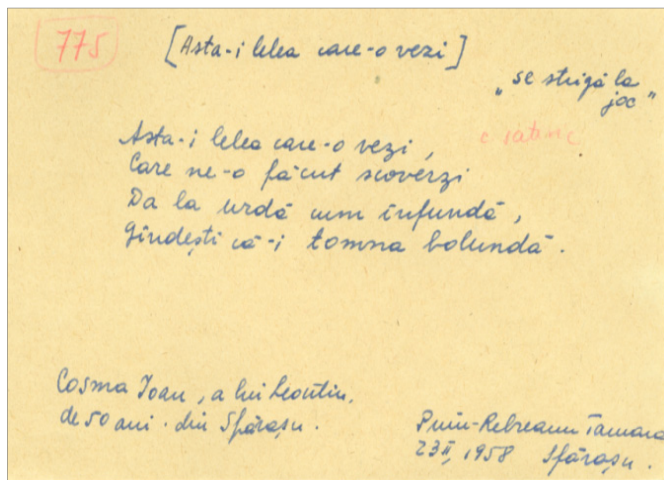 775
[Asta-i lelea care-o vezi]
„se strigă la
joc"
Asta-i lelea care-o vezi,
c satiric
Care ne-o făcut scoverzi
Da la urdă cum înfundă,
Gîndești că-i tomna bolundă.
Cosma Ioan, a lui Leontin,
de 50 ani. din Sfărașu.
Puiu-Rebreanu Tamara
23 II, 1958 Sfărașu.